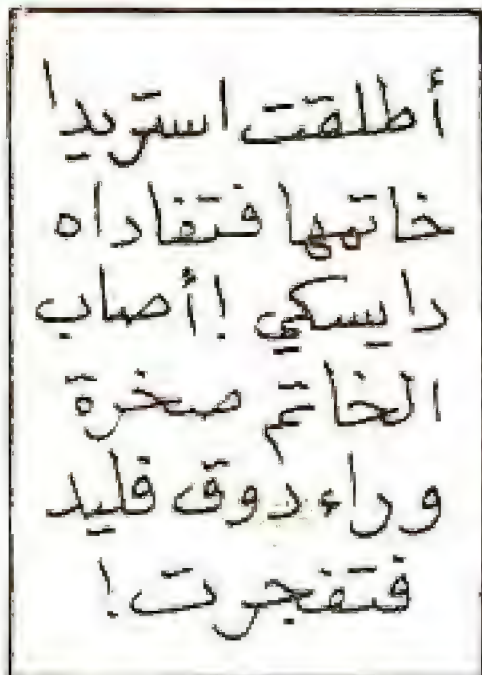 أطلقت استريدا
خاتمها فتفاداه
دايسكي !أصاب
الخاتم صخرة
وراء دوق فليد
فتفجرت !